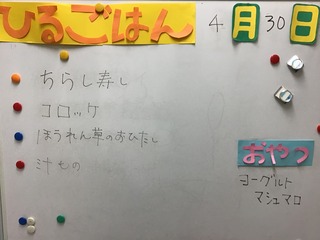 ひるごはん
4月30日
ちらし寿し
コロッケ
ほうれん草のおひたし
汁もの
おやつ
ヨーグルト
マシュマロ